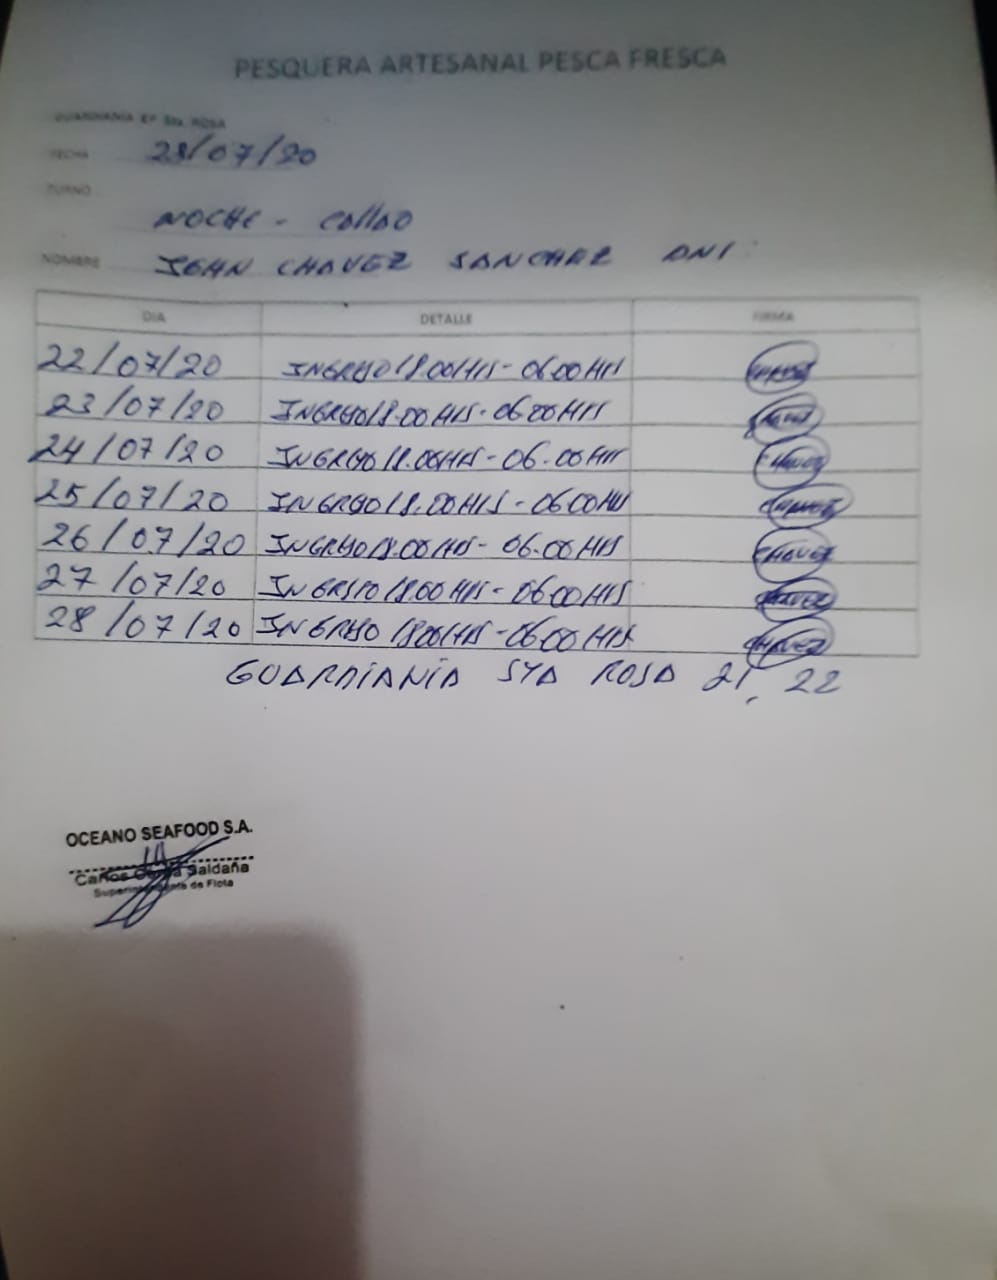 PESQUERA ARTESANAL PESCA FRESCA
GUARDIANIA EP Sta. ROSA
FECHA 28/07/20
TURNO
NOCHE - CALLAO
NOMBRE JEAN CHAVEZ SANCHEZ DNI:
DIA DETALLE FIRMA
22/07/20 INGRESO 18.00 HRS - 06.00 HRS CHAVEZ
23/07/20 INGRESO 18.00 HRS - 06.00 HRS CHAVEZ
24/07/20 INGRESO 18.00 HRS - 06.00 HRS CHAVEZ
25/07/20 INGRESO 18.00 HRS - 06.00 HRS CHAVEZ
26/07/20 INGRESO 18.00 HRS - 06.00 HRS CHAVEZ
27/07/20 INGRESO 18.00 HRS - 06.00 HRS CHAVEZ
28/07/20 INGRESO 18.00 HRS - 06.00 HRS CHAVEZ
GUARDIANIA STA ROSA 21, 22
OCEANO SEAFOOD S.A.
Carlos Saldaña
Superintendente de Flota